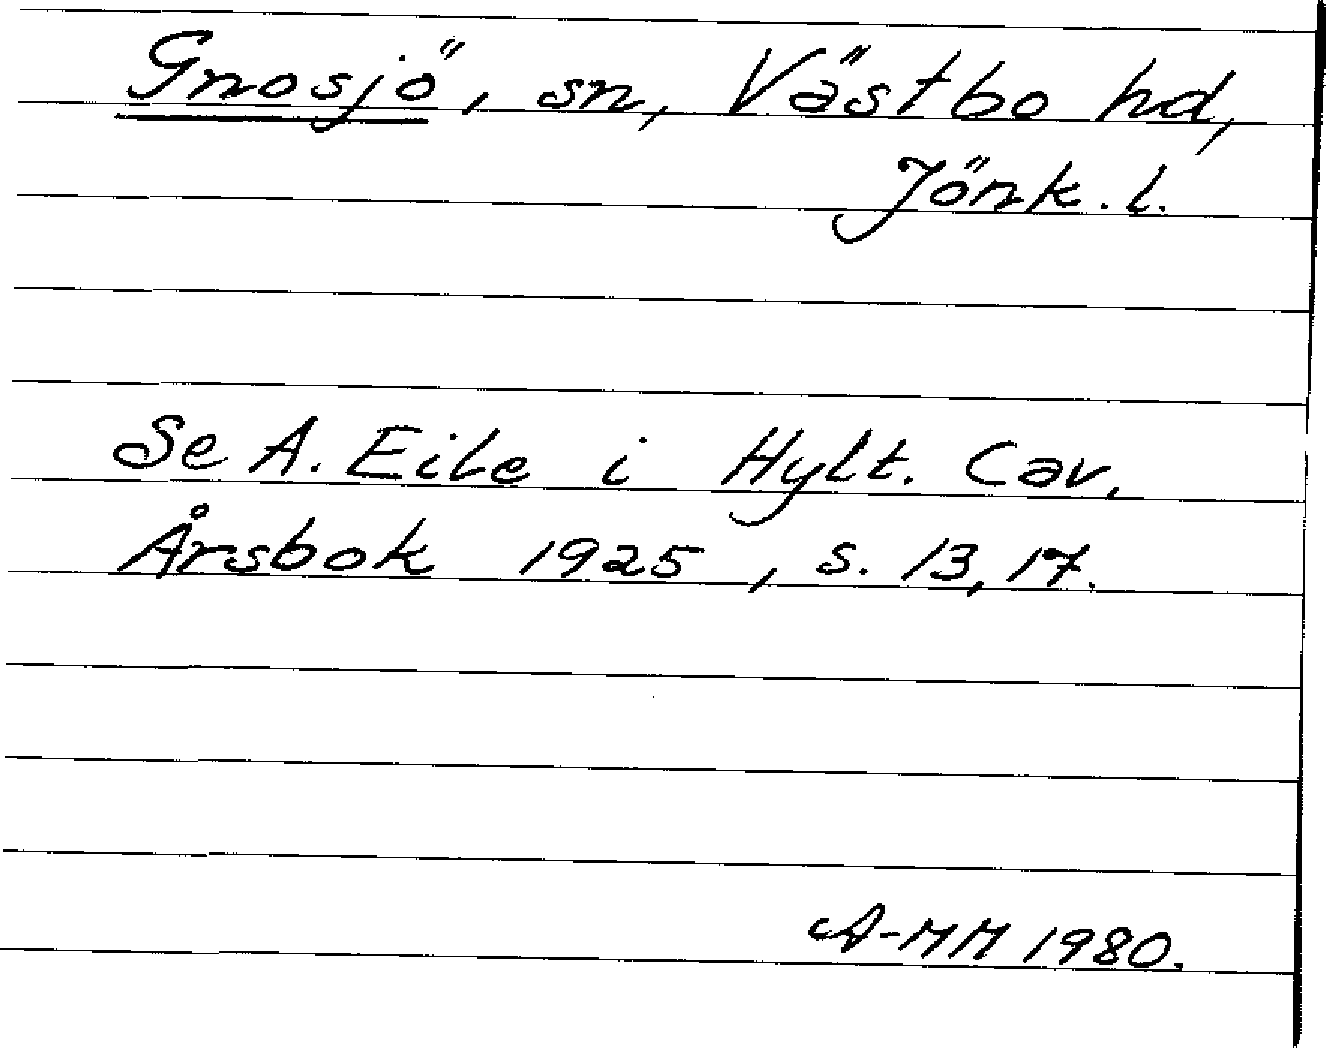 Gnosjö, sn, Västbo hd,
Jönk. l.
Se A. Eile i Hylt. Cav.
Årsbok 1925, s. 13, 17.
A-MM 1980.